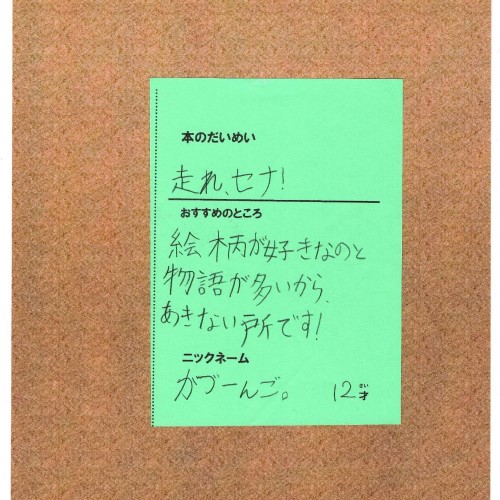 本のだいめい
走れ、セナ!
おすすめのところ
絵柄が好きなのと
物語が多いから、
あきない所です!
ニックネーム
がづーんご。 12才
さい